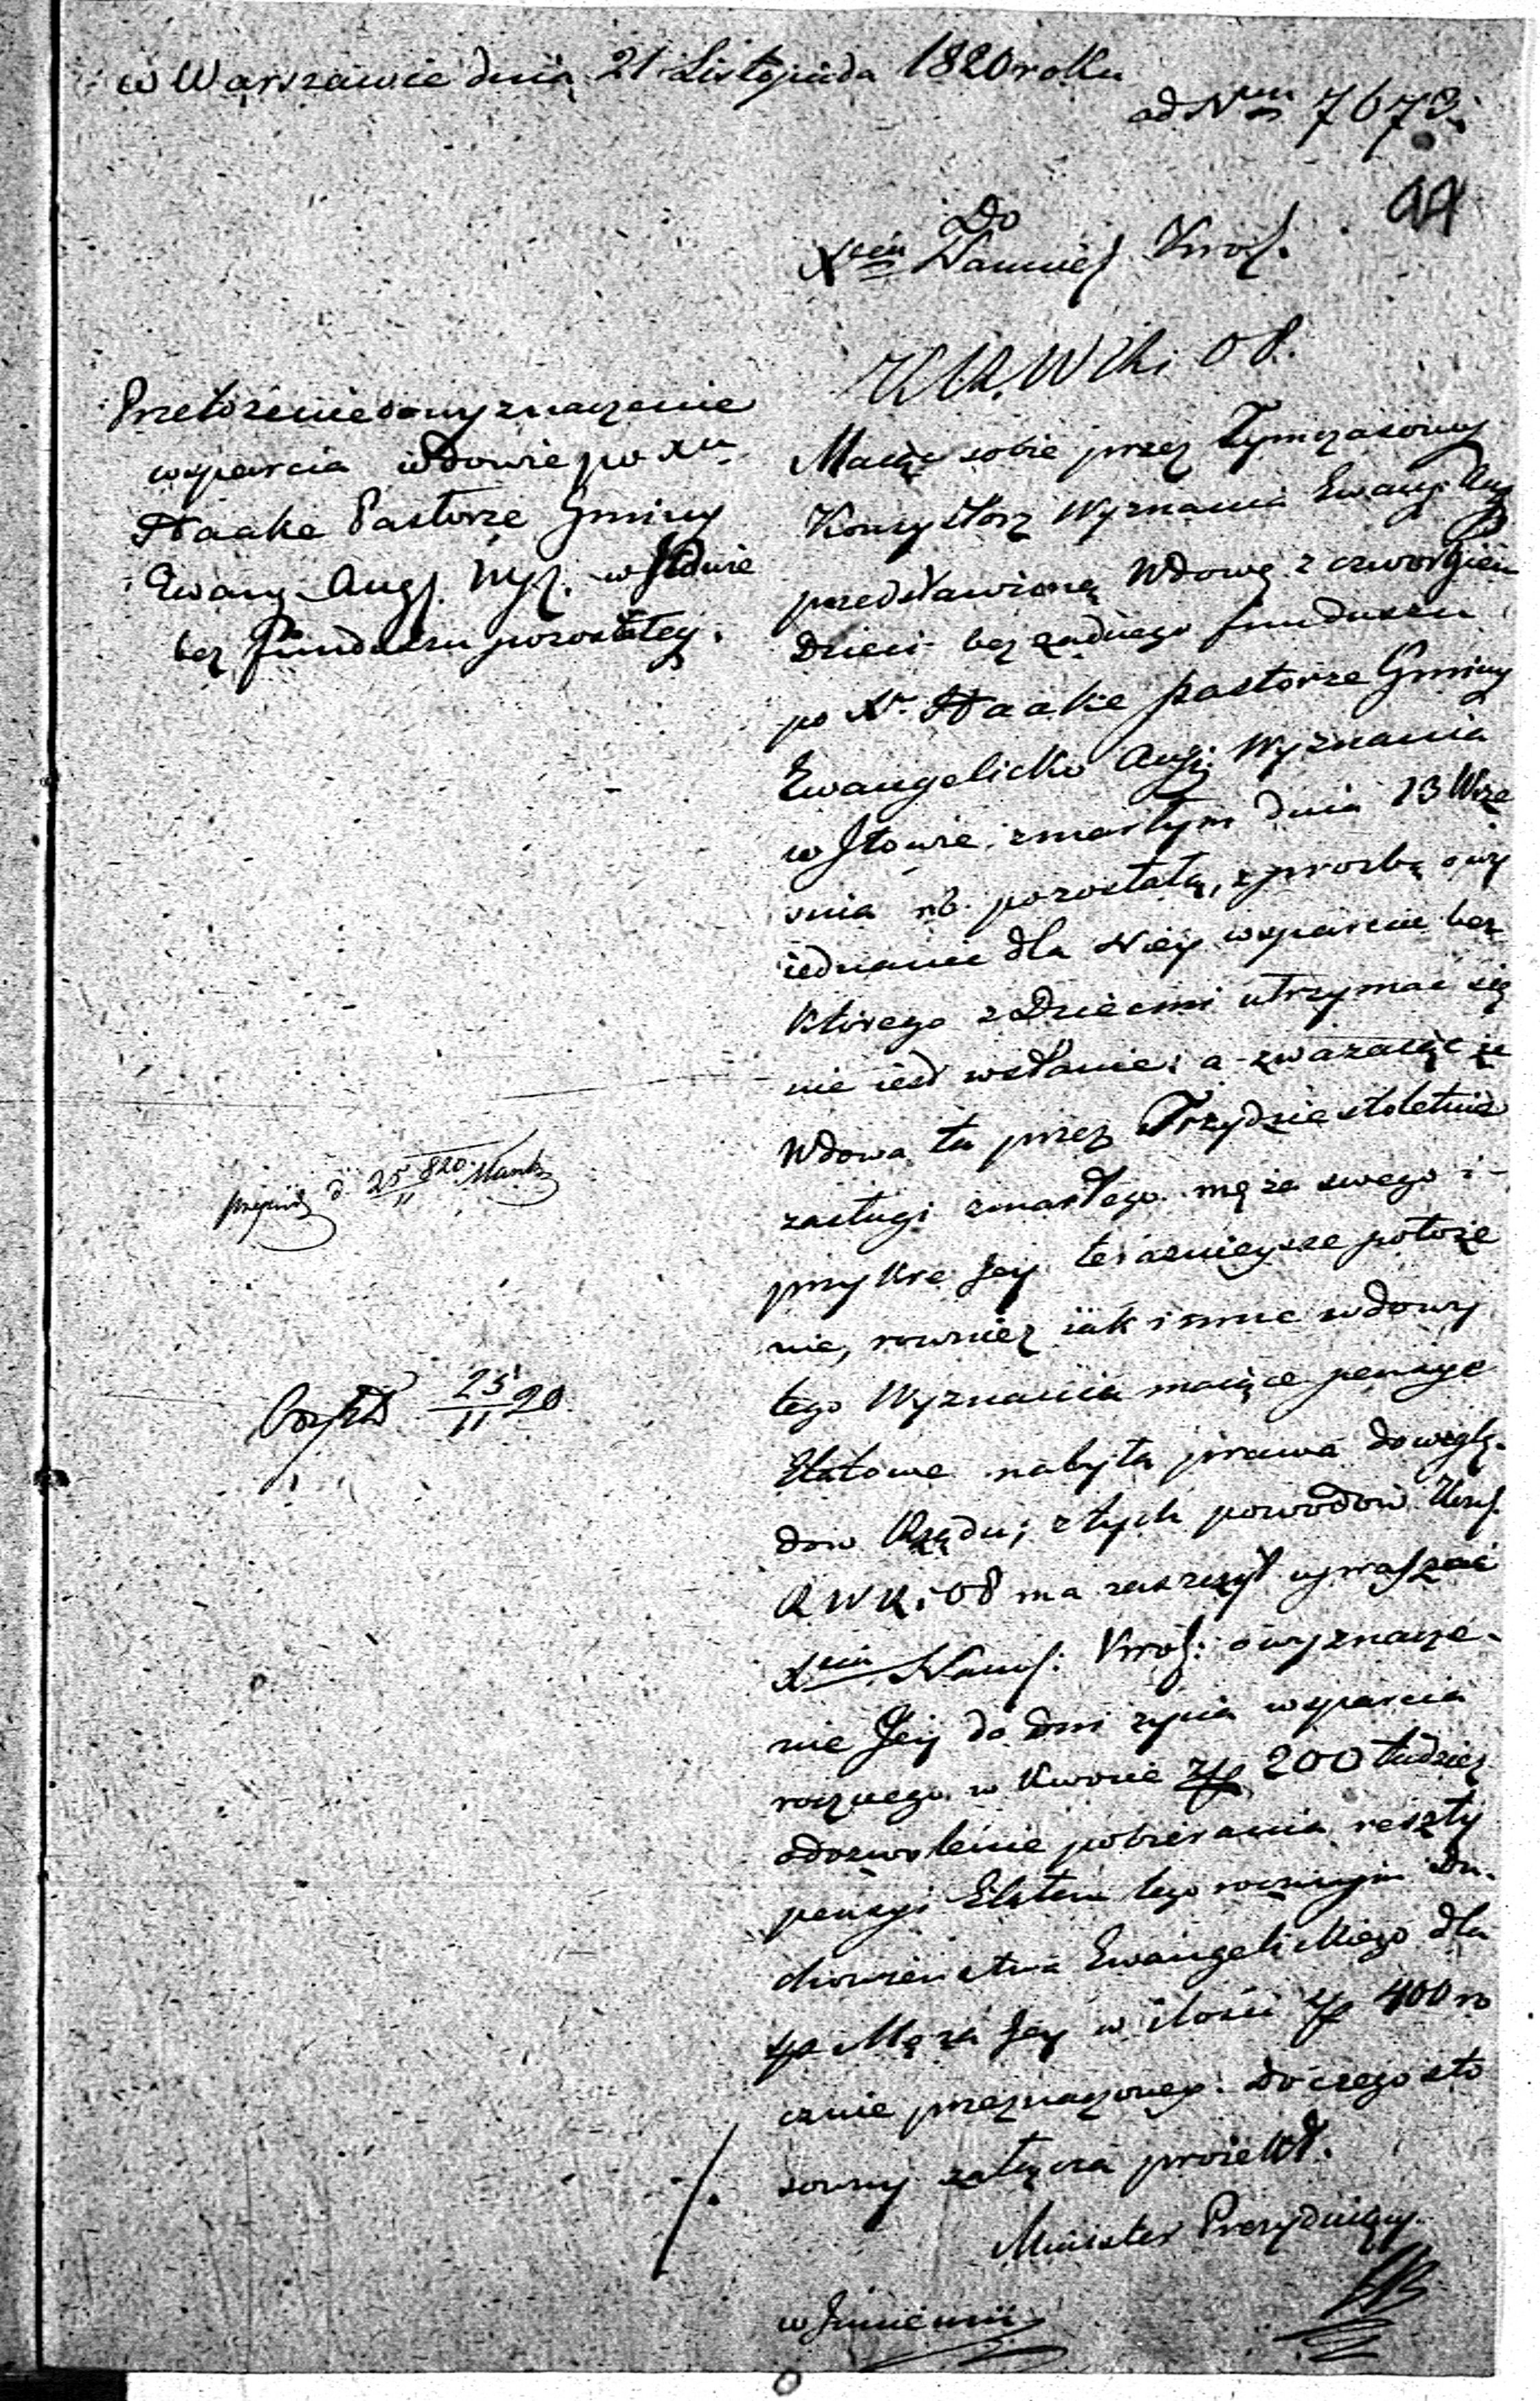 w Warszawie dnia 21 Listopada 1820 roku
ad Nrum 7673.
94
Do
Xcia Namies Krol.
K.R.W.R. i O.P.
Przełożenie o wyznaczenie
wsparcia wdowie po Xu
Haake Pastorze Gminy
Ewang. Augs. Wyz. w Iłowie
bez funduszu pozostałey.
Maiąc sobie przez Tymczasowy
Konsystorz Wyznania Ewang. Aug
przedstawioną Wdowę z czworgiem
Dzieci bez żadnego funduszu
po Xu Haake pastorze Gminy
Ewangelicko Augs. Wyznania
w Iłowie zmarłym dnia 13 Wrze
śnia rb. pozostałą, z prozbą o wy
iednanie dla Niey wsparcia bez
którego z Dziecmi utrzymać się
nie iest wstanie; a zważaiąc że
Wdowa ta przez Trzydziestoletnie
zasługi zmarłego męża swego i
przykre Jey teraznieysze położe
nie, rownież iak inne wdowy
tego Wyznania maiące pensye
Etatowe nabyła prawa do wzglę-
dow Rządu; z tych powodow Kms.
R W R. i O P ma zaszczyt upraszać
Xcia Names. Krol: o wyznacze-
nie Jey do dni życia wsparcia
rocznego w kwocie Złp 200 tudzież
odozwolenie pobierania reszty
pensyi Etatem tego rocznym Du-
chowieństwa Ewangelickiego dla
śp Męża Jey w ilości złp 400 ro
cznie przeznaczoney. Do czego sto
sowny załącza proiekt.
Minister Prezyduiący
w Imieniu
25/11 820
25/11 20